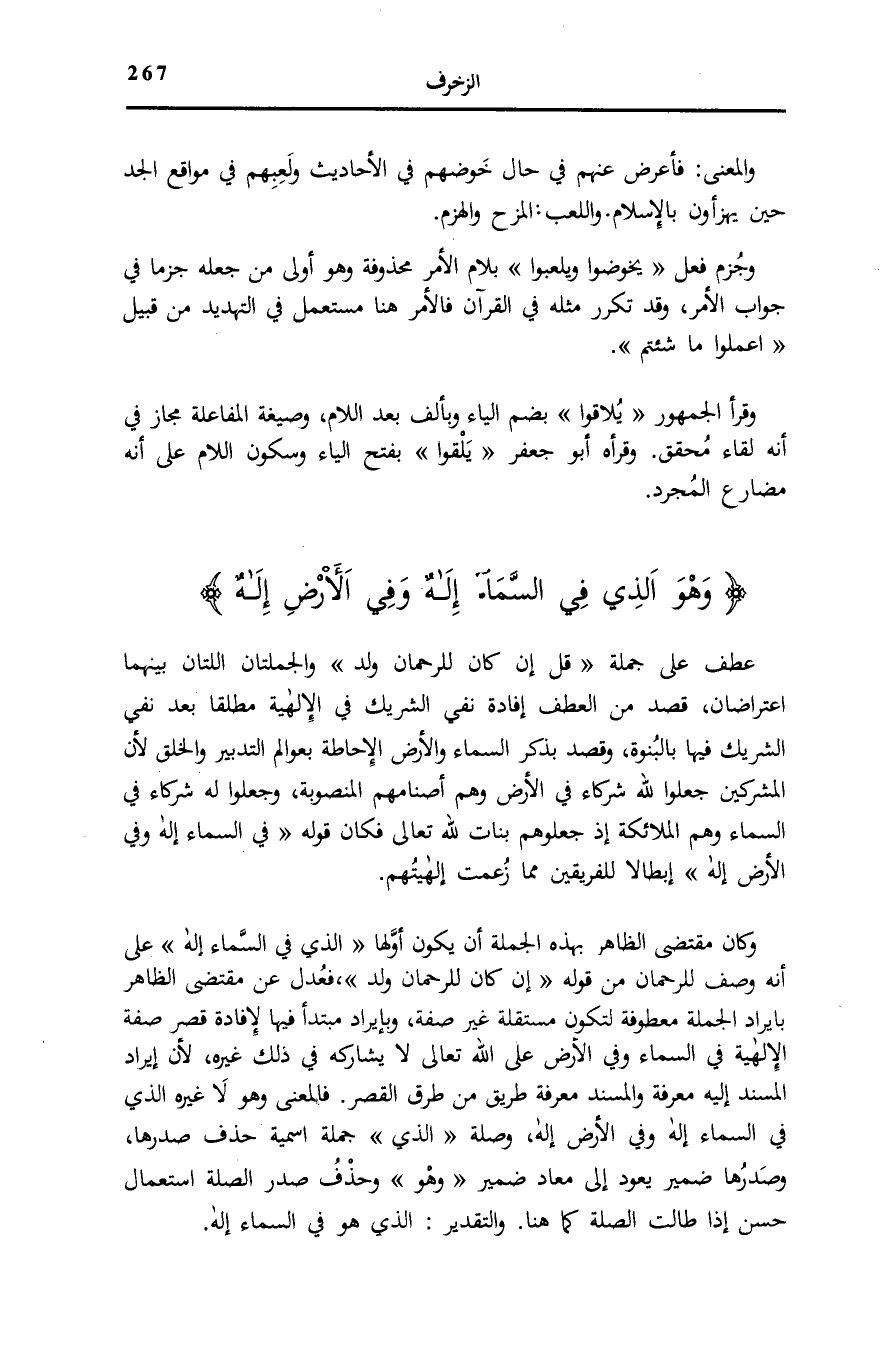 267
الزخرف
والمعنى: فأعرض عنهم في حال خَوضهم في الأحاديث ولَعِبِهم في مواقع الجد
حين يهزأون بالإسلام. واللعب: المزح والهزم.
وجُزم فعل « يخوضوا ويلعبوا » بلام الأمر محذوفة وهو أولى من جعله جزما في
جواب الأمر، وقد تكرر مثله في القرآن فالأمر هنا مستعمل في التهديد من قبيل
« اعملوا ما شئتم ».
وقرأ الجمهور « يُلاقوا » بضم الياء وبألف بعد اللام، وصيغة المفاعلة مجاز في
أنه لقاء مُحقق. وقرأه أبو جعفر « يَلْقوا » بفتح الياء وسكون اللام على أنه
مضارع المُجرد.
﴿ وَهْوَ اَلذِي فِي السَّمَآءِ إِلَـٰهٌ وَفِي اَلْأَرْضِ إِلَـٰهٌ ﴾
عطف على جملة « قل إن كان للرحمان ولد » والجملتان اللتان بينهما
اعتراضان، قصد من العطف إفادة نفي الشريك في الإلٰهية مطلقا بعد نفي
الشريك فيها بالبُنوة، وقصد بذكر السماء والأرض الإحاطة بعوالم التدبير والخلق لأن
المشركين جعلوا لله شركاء في الأرض وهم أصنامهم المنصوبة، وجعلوا له شركاء في
السماء وهم الملائكة إذ جعلوهم بنات لله تعالى فكان قوله « في السماء إلٰه وفي
الأرض إلٰه » إبطالا للفريقين مما زُعمت إلٰهيتُهم.
وكان مقتضى الظاهر بهذه الجملة أن يكون أوَّلها « الذي في السَّماء إلٰه » على
أنه وصف للرحمان من قوله « إن كان للرحمان ولد »،فعُدل عن مقتضى الظاهر
بايراد الجملة معطوفة لتكون مستقلة غير صفة، وبإيراد مبتدأ فيها لإفادة قصر صفة
الإلٰهية في السماء وفي الأرض على الله تعالى لا يشاركه في ذلك غيره، لأن إيراد
المسند إليه معرفة والمسند معرفة طريق من طرق القصر. فالمعنى وهو لَا غيره الذي
في السماء إلٰه وفي الأرض إلٰه، وصلة « الذي » جملة اسمية حذف صدرها،
وصَدرُها ضمير يعود إلى معاد ضمير « وهْو » وحذْفُ صدر الصلة استعمال
حسن إذا طالت الصلة كما هنا. والتقدير : الذي هو في السماء إلٰه.